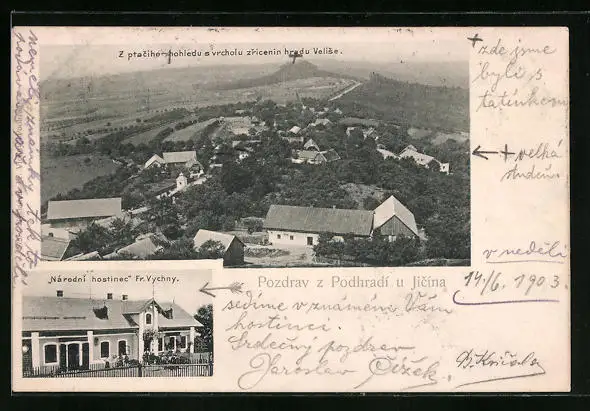 Z ptačího pohledu s vrcholu zřícenin hradu Veliše.
zde jsme
byli s
tatínkem
velká
studeň
v neděli
14/6. 1903.
"Národní hostinec" Fr. Výchny.
Pozdrav z Podhradí u Jičína
sedíme v známém Vám
hostinci.
Srdečný pozdrav
Jaroslav Čížek.